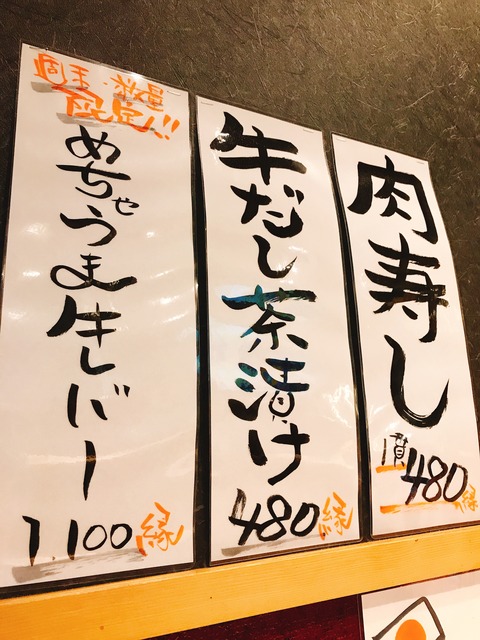 肉寿し
1貫480縁
牛だし茶漬け
480縁
週末・数量
限定!!
めちゃうま生レバー
1.100縁